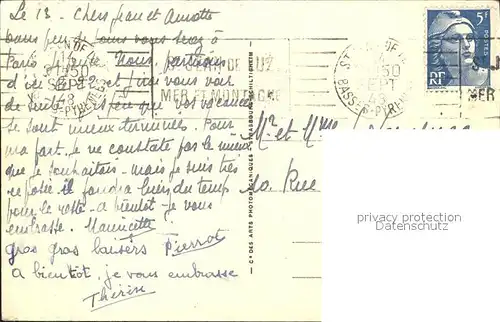 Le 13 - Chers Jean et Annette
dans peu de jours vous serez à
Paris Nous partirons
d'ici le 22 et irai vous voir
de suite que vos vacances
se sont mieux terminées. Pour
ma part, je ne constate pas le mieux
que je souhaitais - mais je suis très
reposée il faudra bien du temps
pour le reste - a bientôt - je vous
embrasse. Mauricette
gros gros baisers Pierrot
A bientôt, je vous embrasse
Thérèse
1950
SEPT
MER ET MONTAGNE
BASSES-PYRENEES
5F
POSTES
RF
MER
Mr et Mme
40. Rue
Cie DES ARTS PHOTOMÉCANIQUES STRASBOURG-SCHILTIGHEIM
privacy protection
Datenschutz